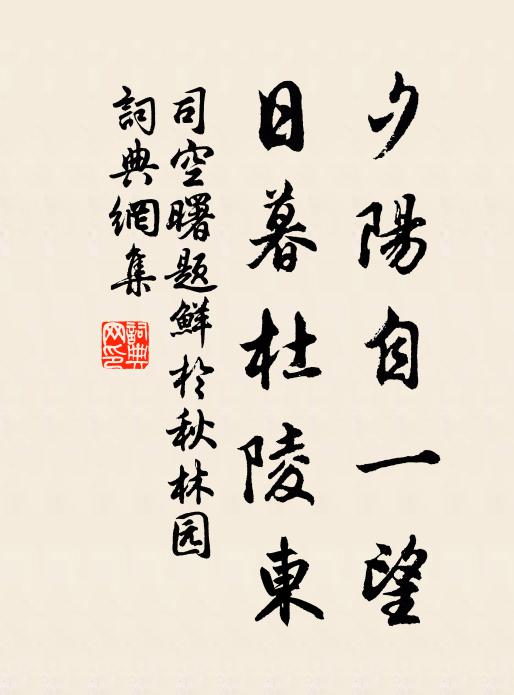 夕陽自一望
日暮杜陵東
司空曙题鲜于秋林园
詞典網集
詞典网印